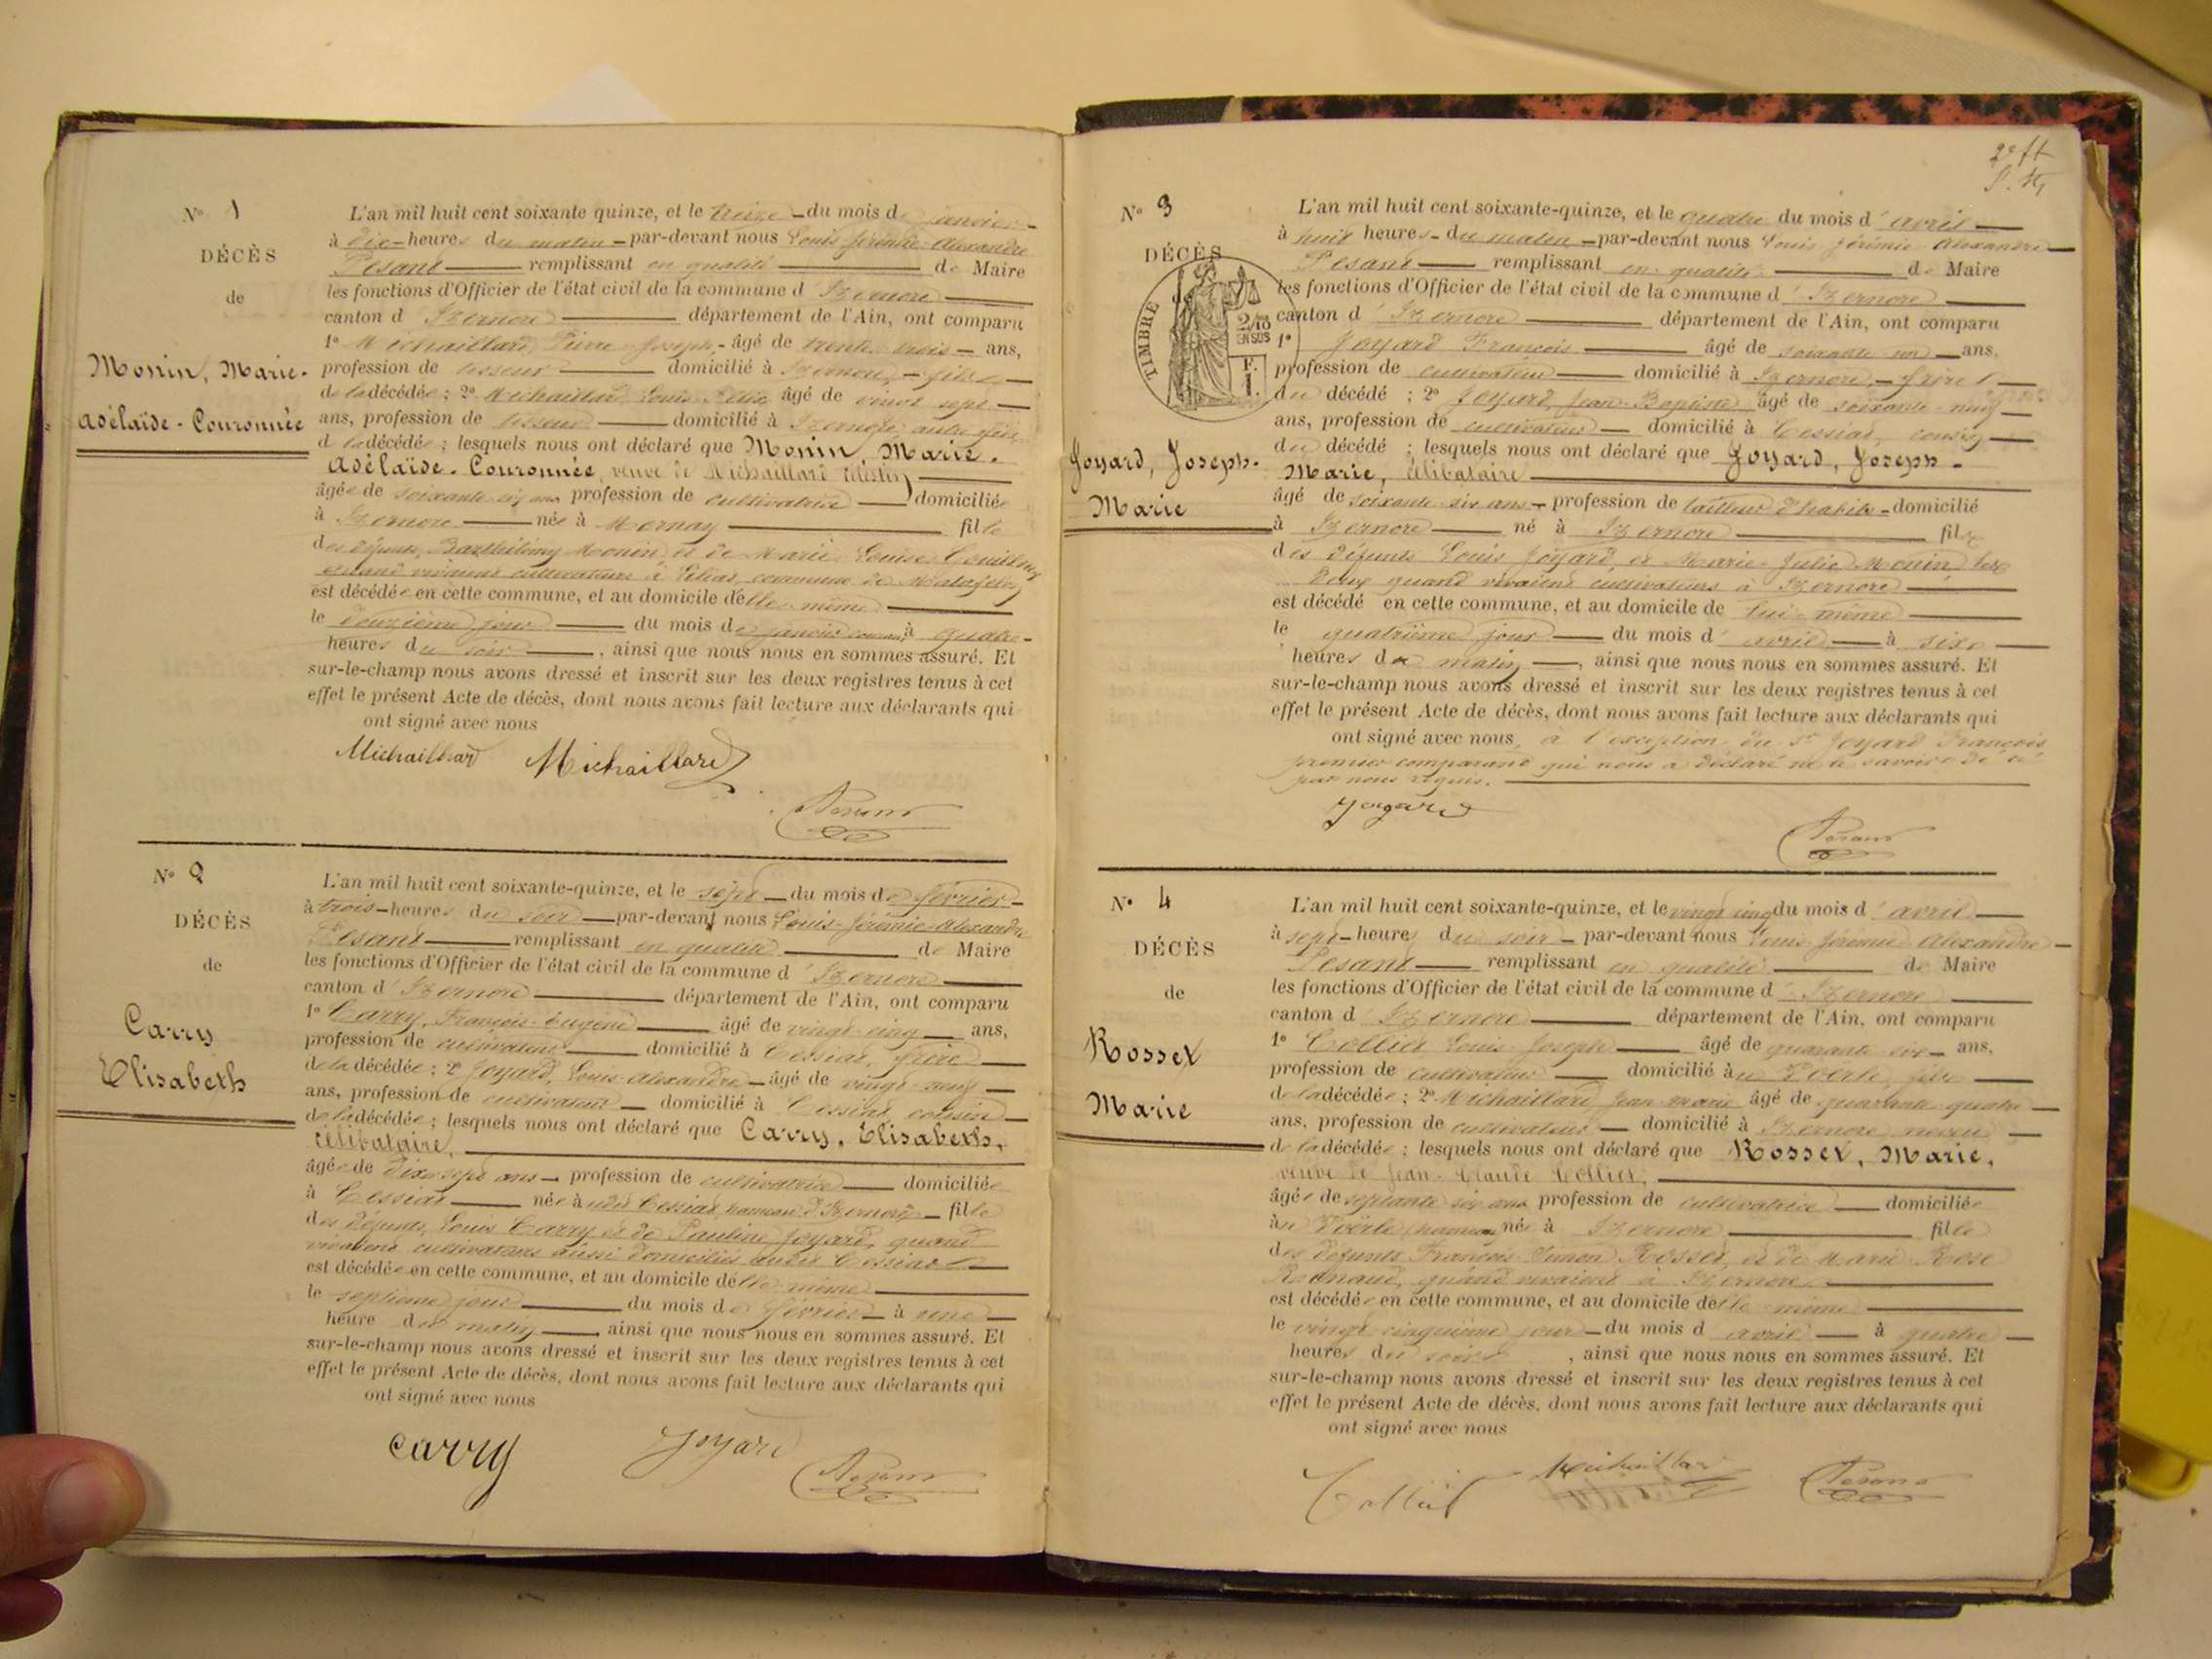 N° 1
DÉCÈS
de
Monin, Marie-
Adélaïde-Couronnée
L'an mil huit cent soixante quinze, et le treize du mois de janvier
à dix heures du matin par-devant nous Louis Jérémie Alexandre
Pesant remplissant en qualité de Maire
les fonctions d'Officier de l'état civil de la commune d'Izernore
canton d'Izernore département de l'Ain, ont comparu
1° Michaillard, Pierre Joseph, âgé de trente trois ans,
profession de tisseur domicilié à Izernore, fils
de la décédée ; 2° Michaillard Louis âgé de vingt sept
ans, profession de tisseur domicilié à Izernore, autre fils
de la décédée ; lesquels nous ont déclaré que Monin, Marie-
Adélaïde-Couronnée, veuve de Michaillard Célestin
âgée de soixante six ans profession de cultivatrice domiciliée
à Izernore née à Mornay fille
des défunts, Barthélémy Monin, et de Marie Louise
quand vivaient cultivateurs à commune de Matafelon
est décédée en cette commune, et au domicile d'elle-même
le douzième jour du mois de janvier courant à quatre
heures du soir, ainsi que nous nous en sommes assuré. Et
sur-le-champ nous avons dressé et inscrit sur les deux registres tenus à cet
effet le présent Acte de décès, dont nous avons fait lecture aux déclarants qui
ont signé avec nous
Michaillard Michaillard
Pesant
N° 2
DÉCÈS
de
Carry
Elisabeth
L'an mil huit cent soixante-quinze, et le sept du mois de février
à trois heures du soir par-devant nous Louis-Jérémie-Alexandre
Pesant remplissant en qualité de Maire
les fonctions d'Officier de l'état civil de la commune d'Izernore
canton d'Izernore département de l'Ain, ont comparu
1° Carry, François-Eugène âgé de vingt-cinq ans,
profession de cultivateur domicilié à Cessiat, frère
de la décédée ; 2° Joyard, Louis-Alexandre âgé de vingt-neuf
ans, profession de cultivateur domicilié à Cessiat, cousin
de la décédée ; lesquels nous ont déclaré que Carry, Elisabeth,
célibataire,
âgée de dix-sept ans profession de cultivatrice domiciliée
à Cessiat née audit Cessiat, hameau d'Izernore fille
des défunts, Louis Carry et de Pauline Joyard, quand
vivaient cultivateurs aussi domiciliés audit Cessiat
est décédée en cette commune, et au domicile d'elle-même
le septième jour du mois de février à une
heure du matin ainsi que nous nous en sommes assuré. Et
sur-le-champ nous avons dressé et inscrit sur les deux registres tenus à cet
effet le présent Acte de décès, dont nous avons fait lecture aux déclarants qui
ont signé avec nous
Carry Joyard
Pesant
2e ft
N° 3
DÉCÈS
de
TIMBRE
2/10
EN SUS
F.
1.
Joyard, Joseph-
Marie
L'an mil huit cent soixante-quinze, et le quatre du mois d'avril
à huit heures du matin par-devant nous Louis-Jérémie-Alexandre
Pesant remplissant en qualité de Maire
les fonctions d'Officier de l'état civil de la commune d'Izernore
canton d'Izernore département de l'Ain, ont comparu
1° Joyard François âgé de soixante un ans,
profession de cultivateur domicilié à Izernore, frère
du décédé ; 2° Joyard Jean-Baptiste âgé de soixante-neuf
ans, profession de cultivateur domicilié à Cessiat, cousin
du décédé ; lesquels nous ont déclaré que Joyard, Joseph-
Marie, célibataire
âgé de soixante six ans profession de tailleur d'habits domicilié
à Izernore né à Izernore fils
des défunts Louis Joyard, et Marie-Julie Monin tous
deux quand vivaient cultivateurs à Izernore
est décédé en cette commune, et au domicile de lui-même
le quatrième jour du mois d'avril à six
heures du matin, ainsi que nous nous en sommes assuré. Et
sur-le-champ nous avons dressé et inscrit sur les deux registres tenus à cet
effet le présent Acte de décès, dont nous avons fait lecture aux déclarants qui
ont signé avec nous, à l'exception du Sr Joyard François
premier comparant qui nous a déclaré ne le savoir de ce
par nous requis.
Joyard
Pesant
N° 4
DÉCÈS
de
Rosset
Marie
L'an mil huit cent soixante-quinze, et le vingt cinq du mois d'avril
à sept heures du soir par-devant nous Louis Jérémie Alexandre
Pesant remplissant en qualité de Maire
les fonctions d'Officier de l'état civil de la commune d'Izernore
canton d'Izernore département de l'Ain, ont comparu
1° Collier Louis-Joseph âgé de quarante six ans,
profession de cultivateur domicilié à Voerle, fils
de la décédée ; 2° Michaillard Jean Marie âgé de quarante quatre
ans, profession de cultivateur domicilié à Izernore neveu
de la décédée ; lesquels nous ont déclaré que Rosset, Marie,
veuve de Jean-Claude Collier,
âgée de septante six ans profession de cultivatrice domiciliée
à Voerle hameau née à Izernore fille
des défunts François-Simon Rosset, et de Marie-Rose
quand vivaient à Izernore
est décédée en cette commune, et au domicile d'elle-même
le vingt-cinquième jour du mois d'avril à quatre
heures du soir, ainsi que nous nous en sommes assuré. Et
sur-le-champ nous avons dressé et inscrit sur les deux registres tenus à cet
effet le présent Acte de décès, dont nous avons fait lecture aux déclarants qui
ont signé avec nous
Collier Michaillard Pesant